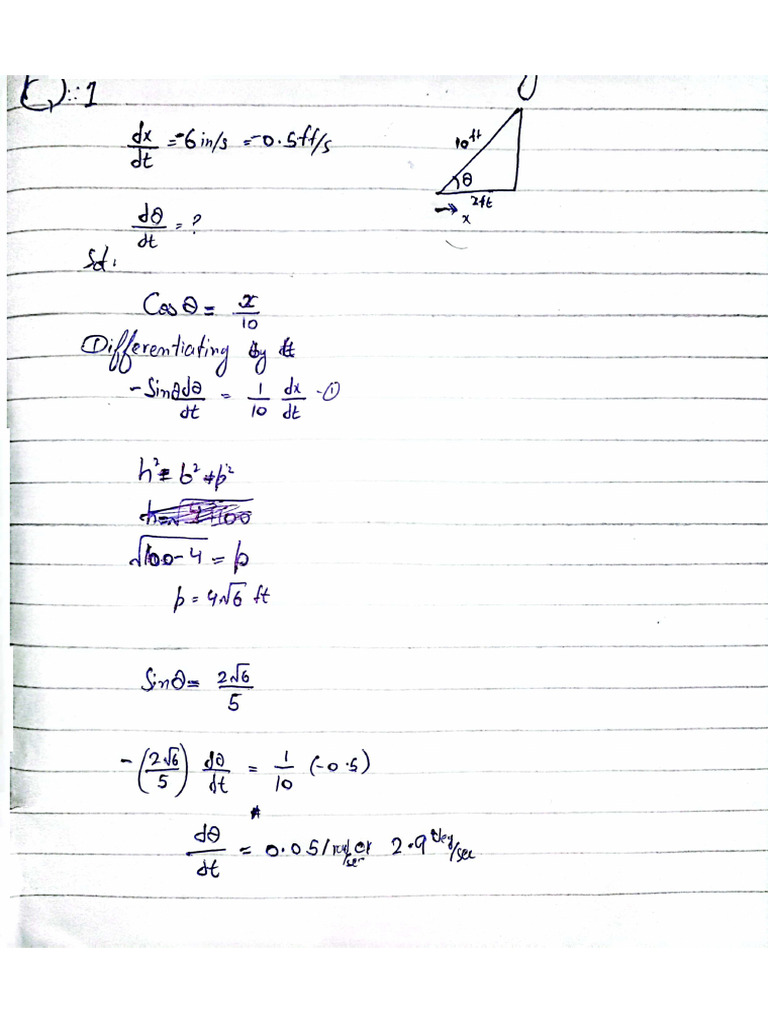 Q::1
dx/dt = -6in/s = -0.5ft/s
10ft
θ
2ft
x
dθ/dt = ?
Sol.
Cosθ = x/10
Differentiating by t
-Sinθ dθ/dt = 1/10 dx/dt -①
h² = b² + p²
√100-4 = p
p = 4√6 ft
Sinθ = 2√6/5
-(2√6/5) dθ/dt = 1/10 (-0.5)
dθ/dt = 0.051 rad/sec or 2.9 deg/sec